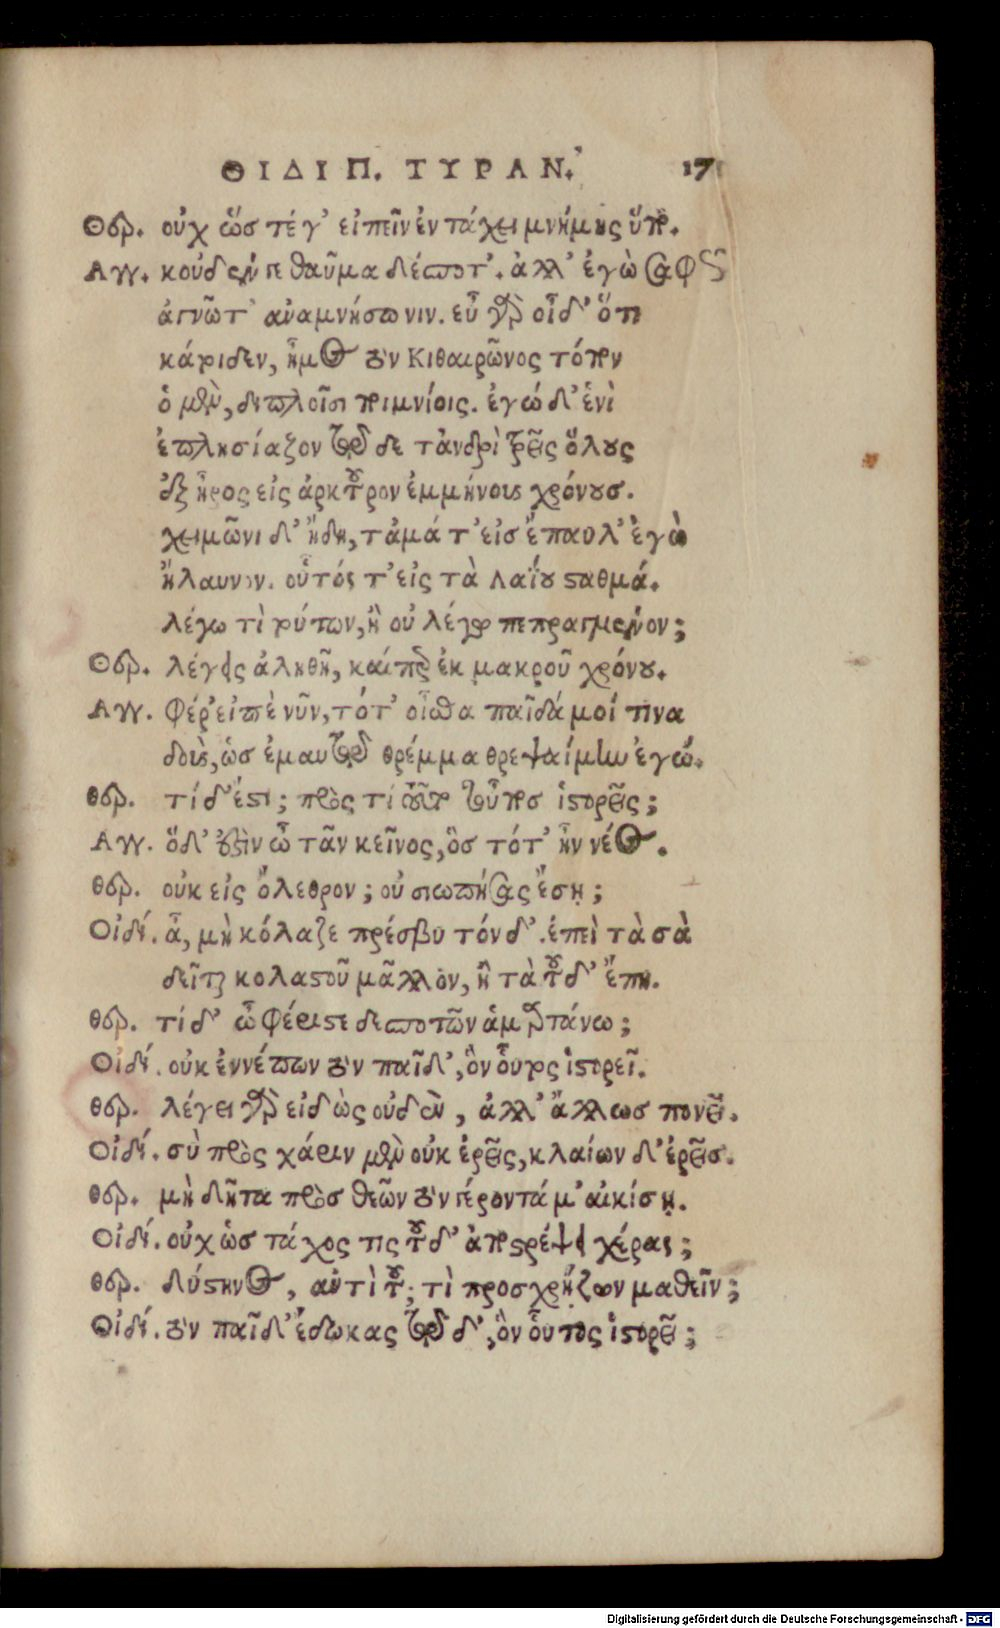 ΟΙΔΙΠ. ΤΥΡΑΝ. 171
Θερ. οὐχ ὥστέ γ’ εἰπεῖν ἐν τάχει μνήμης ὕπο.
Αγγ. κοὐδέν γε θαῦμα δέσποτ’. ἀλλ’ ἐγὼ σαφῶς
ἀγνῶτ’ ἀναμνήσω νιν. εὖ γὰρ οἶδ’ ὅτι
κάτοιδεν, ἦμος τὸν Κιθαιρῶνος τόπον
ὁ μὲν, διπλοῖσι ποιμνίοις. ἐγώ δ’ ἑνὶ
ἐπλησίαζον τῷδε τἀνδρὶ τρεῖς ὅλους
ἐξ ἦρος εἰς ἀρκτοῦρον ἐμμήνους χρόνους.
χειμῶνι δ’ ἤδη, τἀμά τ’ εἰσ ἔπαυλ’ ἐγὼ
ἤλαυνον. οὗτός τ’ εἰς τὰ Λαΐου σταθμά.
λέγω τὶ τούτων, ἢ οὐ λέγω πεπραγμένον;
Θερ. λέγεις ἀληθῆ, καίπερ ἐκ μακροῦ χρόνου.
Αγγ. Φέρ’ εἰπὲ νῦν, τότ’ οἶσθα παῖδά μοί τινα
δοὺς, ὡσ ἐμαυτῷ θρέμμα θρεψαίμην ἐγώ.
θερ. τί δ’ ἔστι; πρὸς τί τοῦτο τοὖπος ἱστορεῖς;
Αγγ. ὅδ’ ἐστὶν ὦ τᾶν κεῖνος, ὃσ τότ’ ἦν νέος.
θερ. οὐκ εἰς ὄλεθρον; οὐ σιωπήσας ἔσῃ;
Οἰδί. ἆ, μὴ κόλαζε πρέσβυ τόνδ’. ἐπεὶ τὰ σὰ
δεῖται κολαστοῦ μᾶλλον, ἢ τὰ τοῦδ’ ἔπη.
θερ. τί δ’ ὦ φέριστε δεσποτῶν ἁμαρτάνω;
Οἰδί. οὐκ ἐννέπων τὸν παῖδ’, ὃν οὗτος ἱστορεῖ.
θερ. λέγει γὰρ εἰδὼς οὐδὲν, ἀλλ’ ἄλλωσ πονεῖ.
Οἰδί. σὺ πρὸς χάριν μὲν οὐκ ἐρεῖς, κλαίων δ’ ἐρεῖσ.
θερ. μὴ δῆτα πρὸσ θεῶν τὸν γέροντά μ’ αἰκίσῃ.
Οἰδί. οὐχ ὡσ τάχος τις τοῦδ’ ἀποστρέψει χέρας;
θερ. δύστηνος, ἀντὶ τοῦ; τὶ προσχρῄζων μαθεῖν;
Οἰδί. τὸν παῖδ’ ἔδωκας τῷδ’, ὃν οὗτος ἱστορεῖ;
Digitalisierung gefördert durch die Deutsche Forschungsgemeinschaft - DFG